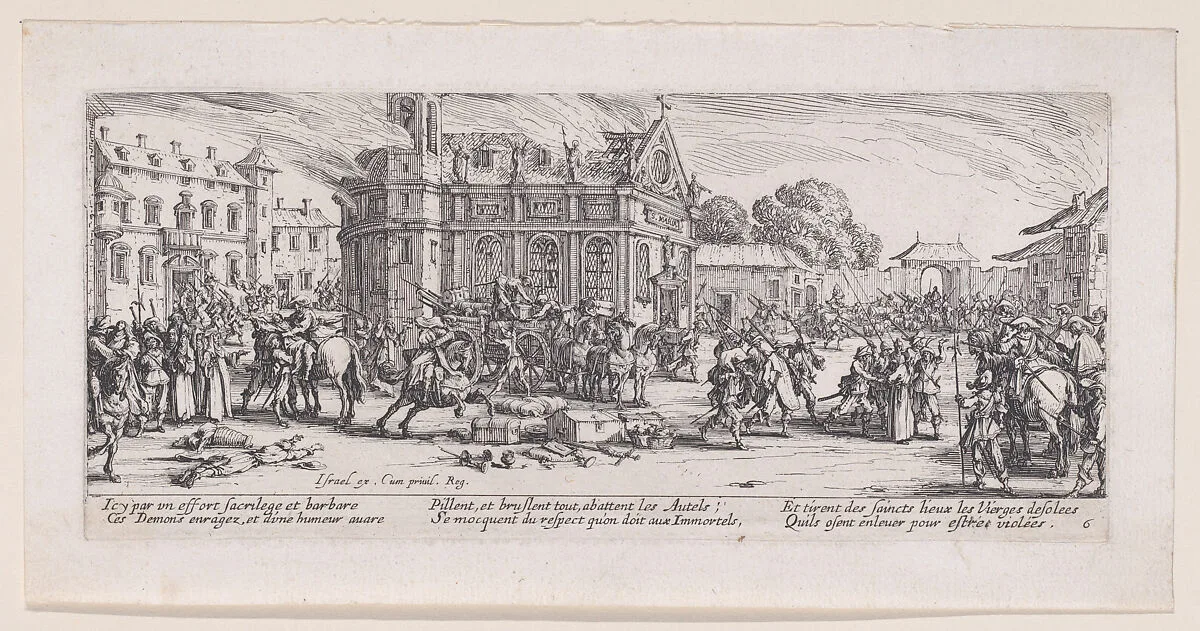 Israel ex. Cum privil. Reg.
Icy par vn effort sacrilege et barbare
Ces Demons enragez, et d'vne humeur auare
Pillent, et bruslent tout, abattent les Autels ;
Se mocquent du respect qu'on doit aux Immortels,
Et tirent des saincts lieux les Vierges desolees
Qu'ils osent enleuer pour estre violées.
6